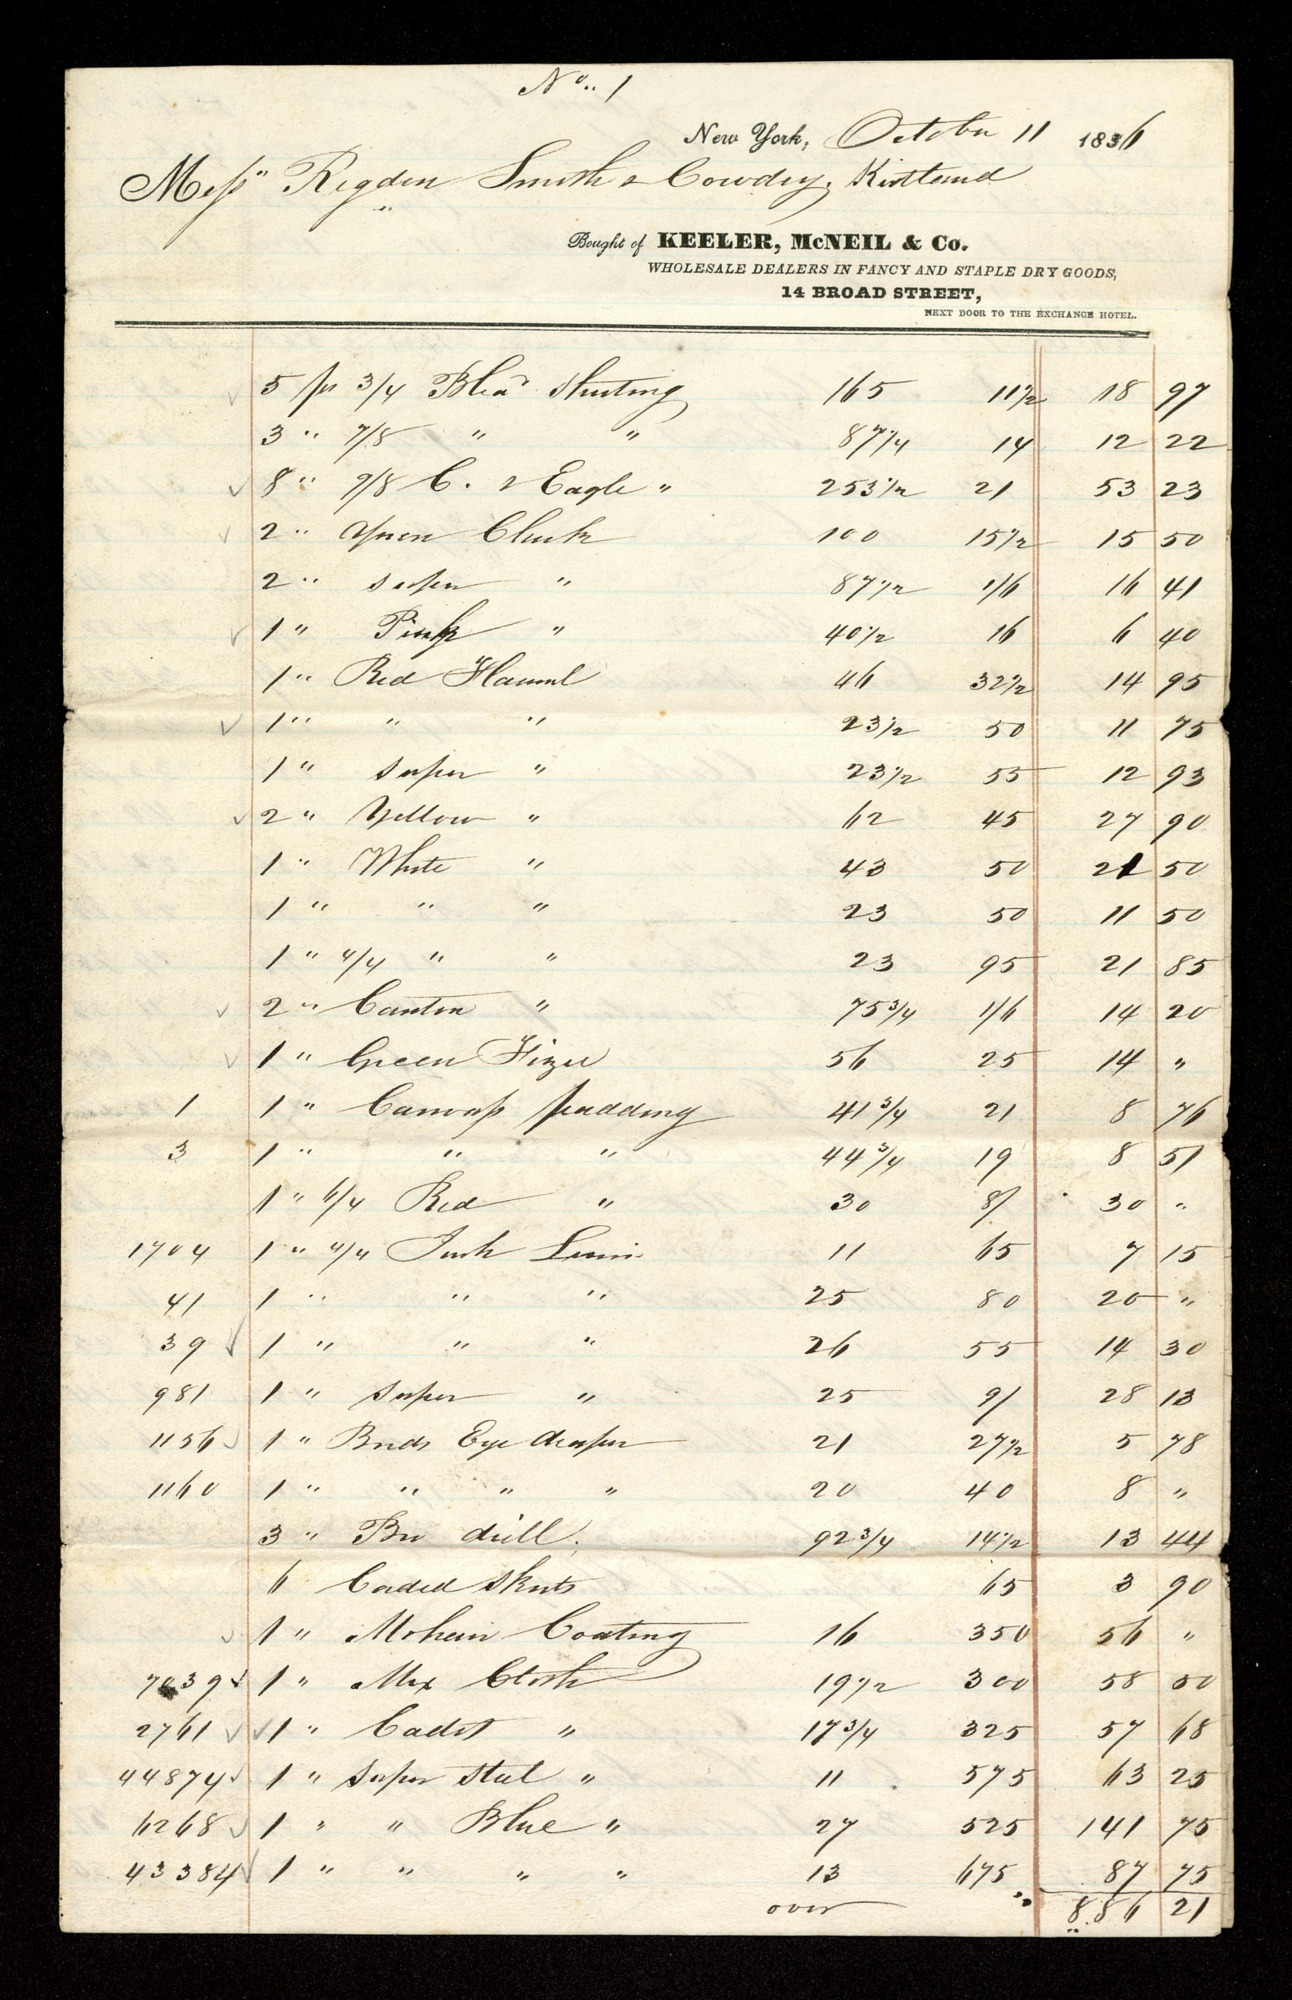 No.. 1
New York, October 11 1836
Messrs Rigdon Smith & Cowdry, Kirtland
Bought of KEELER, McNEIL & Co.
WHOLESALE DEALERS IN FANCY AND STAPLE DRY GOODS,
14 BROAD STREET,
NEXT DOOR TO THE EXCHANGE HOTEL.
5 ps 3/4 Blea. Shirting 165 11½ 18 97
3 " 7/8 " " 87¼ 14 12 22
8 " 9/8 C. & Eagle " 253½ 21 53 23
2 " Apron Check 100 15½ 15 50
2 " super " 87½ 1/6 16 41
1 " Pink " 40½ 16 6 40
1 " Red Flannel 46 32½ 14 95
1 " " " 23½ 50 11 75
1 " super " 23½ 55 12 93
2 " Yellow " 62 45 27 90
1 " White " 43 50 21 50
1 " " " 23 50 11 50
1 " 4/4 " " 23 95 21 85
2 " Canton " 75¾ 1/6 14 20
1 " Green Fizee 56 25 14 "
1 1 " Canvass padding 41¾ 21 8 76
3 1 " " " 44¾ 19 8 51
1 " 6/4 Red " 30 8/ 30 "
1704 1 " 4/4 Irish Linin 11 65 7 15
41 1 " " " 25 80 20 "
39 1 " " " 26 55 14 30
981 1 " super " 25 9/ 28 13
1156 1 " Birds Eye diaper 21 27½ 5 78
1160 1 " " " " 20 40 8 "
3 " Bro drill 92¾ 14½ 13 44
6 Corded Skirts 65 3 90
1 " Mohair Coating 16 350 56 "
7039 1 " Mix Cloth 19½ 300 58 50
2761 1 " Cadet " 17¾ 325 57 68
44874 1 " super steel " 11 575 63 25
6268 1 " " Blue " 27 525 141 75
43384 1 " " " " 13 675 87 75
over 886 21